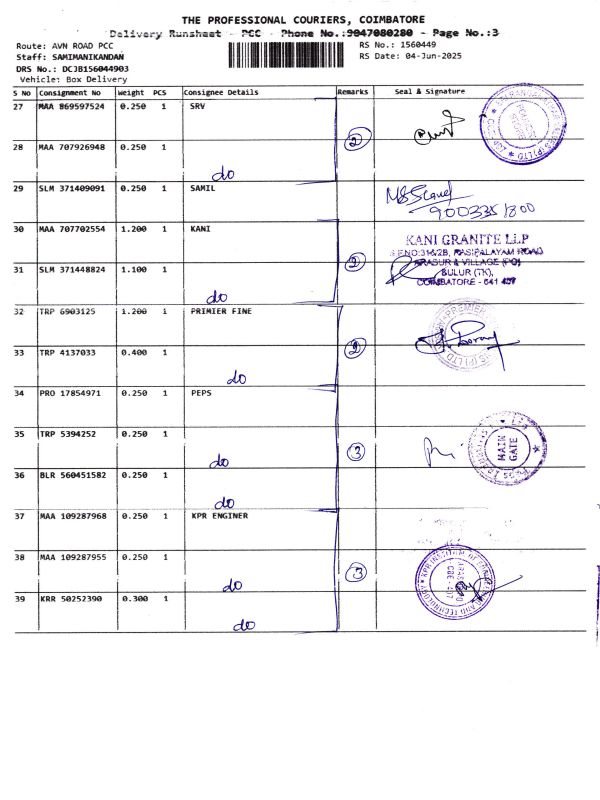 THE PROFESSIONAL COURIERS, COIMBATORE
Delivery Runsheet - PCC - Phone No.:9047080280 - Page No.:3
Route: AVN ROAD PCC
RS No.: 1560449
Staff: SAMIMANIKANDAN
RS Date: 04-Jun-2025
DRS No.: DCJB156044903
Vehicle: Box Delivery
S No Consignment No Weight PCS Consignee Details Remarks Seal & Signature
27 MAA 869597524 0.250 1 SRV
2
28 MAA 707926948 0.250 1
do
29 SLM 371409091 0.250 1 SAMIL
9003351800
30 MAA 707702554 1.200 1 KANI
KANI GRANITE LLP
S.F.NO:316/2B, RASIPALAYAM ROAD
ARASUR & VILLAGE (PO)
SULUR (TK),
COIMBATORE - 641 407
2
31 SLM 371448824 1.100 1
do
32 TRP 6903125 1.200 1 PRIMIER FINE
2
33 TRP 4137033 0.400 1
do
34 PRO 17854971 0.250 1 PEPS
35 TRP 5394252 0.250 1
do
3
MAIN
GATE
36 BLR 560451582 0.250 1
do
37 MAA 109287968 0.250 1 KPR ENGINER
38 MAA 109287955 0.250 1
do
3
39 KRR 50252390 0.300 1
do